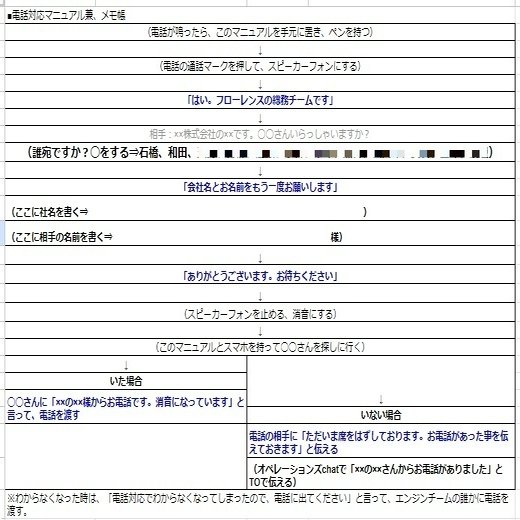 ■電話対応マニュアル兼、メモ帳
(電話が鳴ったら、このマニュアルを手元に置き、ペンを持つ)
↓
(電話の通話マークを押して、スピーカーフォンにする)
↓
「はい。フローレンスの総務チームです」
↓
相手：××株式会社の××です。〇〇さんいらっしゃいますか？
(誰宛ですか？〇をする⇒石橋、和田、)
↓
「会社名とお名前をもう一度お願いします」
↓
(ここに社名を書く⇒ )
(ここに相手の名前を書く⇒ 様)
↓
「ありがとうございます。お待ちください」
↓
(スピーカーフォンを止める、消音にする)
↓
(このマニュアルとスマホを持って〇〇さんを探しに行く)
↓
いた場合
〇〇さんに「××の××様からお電話です。消音になっています」と
言って、電話を渡す
↓
いない場合
電話の相手に「ただいま席をはずしております。お電話があった事を伝
えておきます」と伝える
(オペレーションズchatで「××の××さんからお電話がありました」と
TOで伝える)
※わからなくなった時は、「電話対応でわからなくなってしまったので、電話に出てください」と言って、エンジンチームの誰かに電話を
渡す。